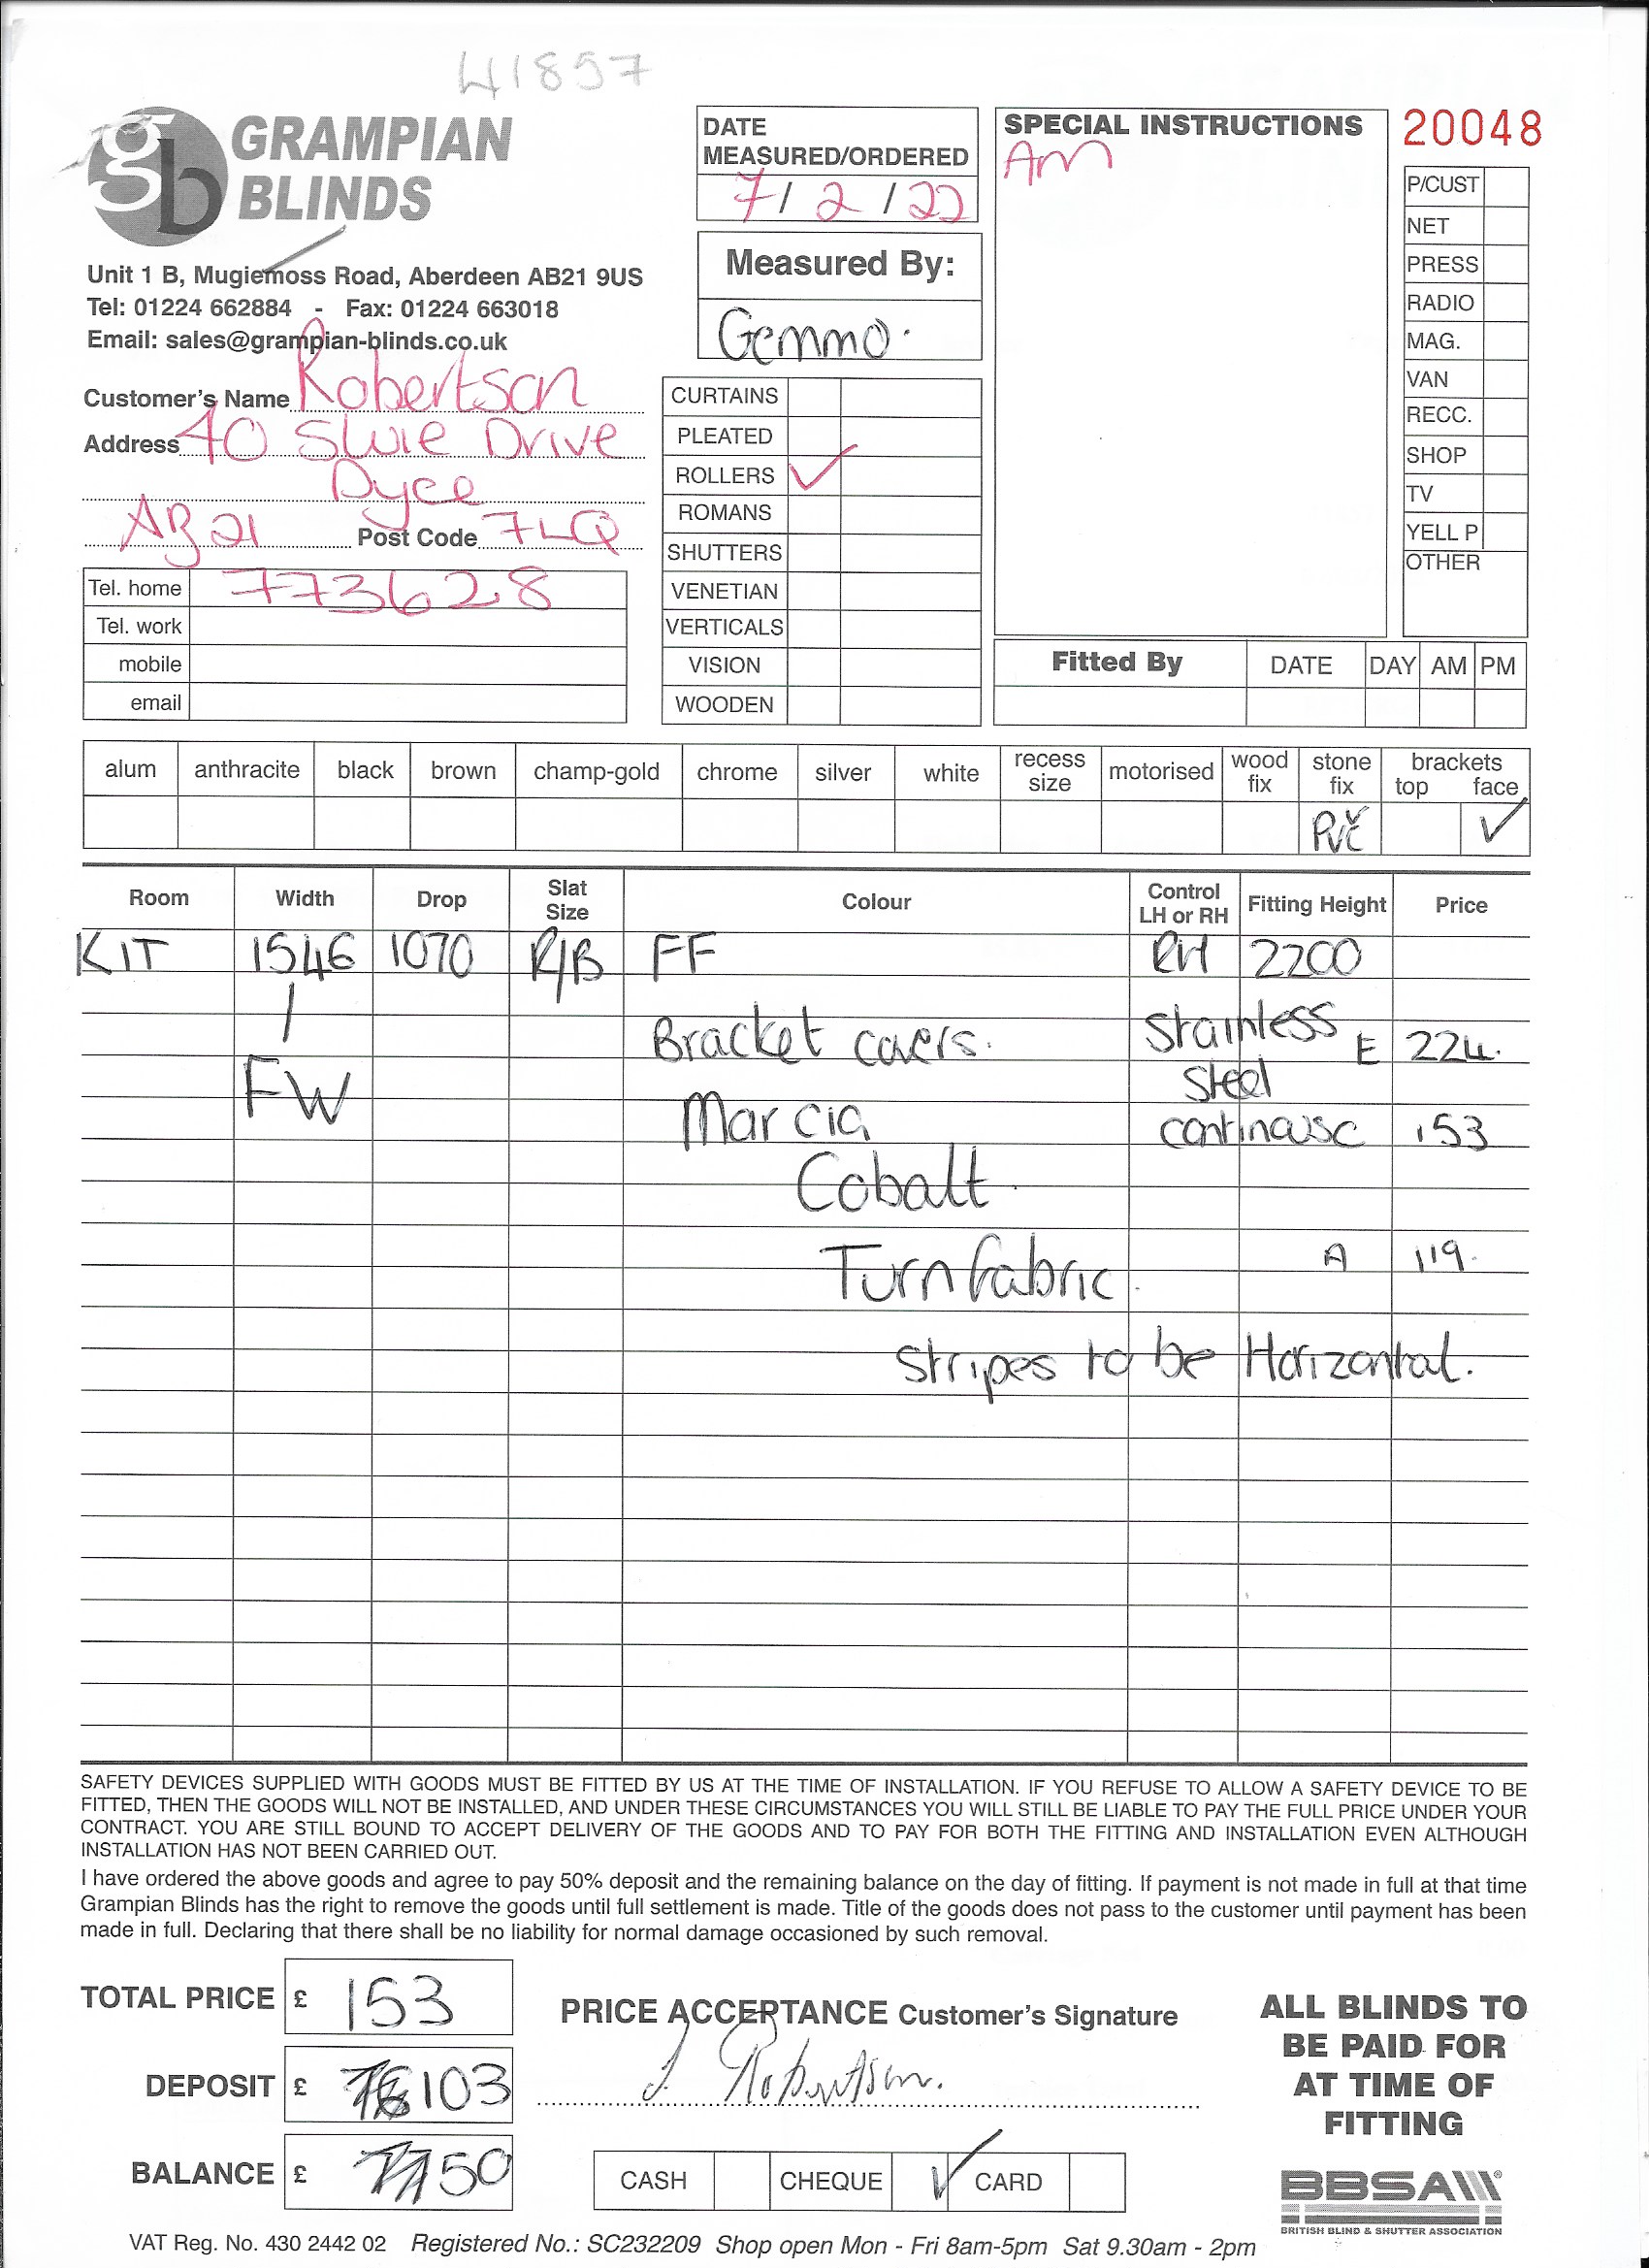 41857
GRAMPIAN
BLINDS
Unit 1 B, Mugiemoss Road, Aberdeen AB21 9US
Tel: 01224 662884 - Fax: 01224 663018
Email: sales@grampian-blinds.co.uk
Customer's Name Robertson
Address 40 Sluie Drive
Dyce
AB21 Post Code 7LQ
Tel. home 773628
Tel. work
mobile
email
DATE
MEASURED/ORDERED
7/2/22
Measured By:
Gemma.
CURTAINS
PLEATED
ROLLERS ✓
ROMANS
SHUTTERS
VENETIAN
VERTICALS
VISION
WOODEN
SPECIAL INSTRUCTIONS
Am
20048
P/CUST
NET
PRESS
RADIO
MAG.
VAN
RECC.
SHOP
TV
YELL P
OTHER
Fitted By DATE DAY AM PM
alum anthracite black brown champ-gold chrome silver white recess size motorised wood fix stone fix brackets top face
PVC ✓
Room Width Drop Slat Size Colour Control LH or RH Fitting Height Price
KIT 1546 1070 R/B FF RH 2200
Bracket covers. Stainless E 224.
FW Steel
Marcia continous C 153
Cobalt.
Turn fabric. A 119.
Stripes to be Horizontal.
SAFETY DEVICES SUPPLIED WITH GOODS MUST BE FITTED BY US AT THE TIME OF INSTALLATION. IF YOU REFUSE TO ALLOW A SAFETY DEVICE TO BE
FITTED, THEN THE GOODS WILL NOT BE INSTALLED, AND UNDER THESE CIRCUMSTANCES YOU WILL STILL BE LIABLE TO PAY THE FULL PRICE UNDER YOUR
CONTRACT. YOU ARE STILL BOUND TO ACCEPT DELIVERY OF THE GOODS AND TO PAY FOR BOTH THE FITTING AND INSTALLATION EVEN ALTHOUGH
INSTALLATION HAS NOT BEEN CARRIED OUT.
I have ordered the above goods and agree to pay 50% deposit and the remaining balance on the day of fitting. If payment is not made in full at that time
Grampian Blinds has the right to remove the goods until full settlement is made. Title of the goods does not pass to the customer until payment has been
made in full. Declaring that there shall be no liability for normal damage occasioned by such removal.
TOTAL PRICE £ 153
DEPOSIT £ 103
BALANCE £ 50
PRICE ACCEPTANCE Customer's Signature
J. Robertson.
CASH CHEQUE ✓ CARD
ALL BLINDS TO
BE PAID FOR
AT TIME OF
FITTING
BBSA
BRITISH BLIND & SHUTTER ASSOCIATION
VAT Reg. No. 430 2442 02 Registered No.: SC232209 Shop open Mon - Fri 8am-5pm Sat 9.30am - 2pm